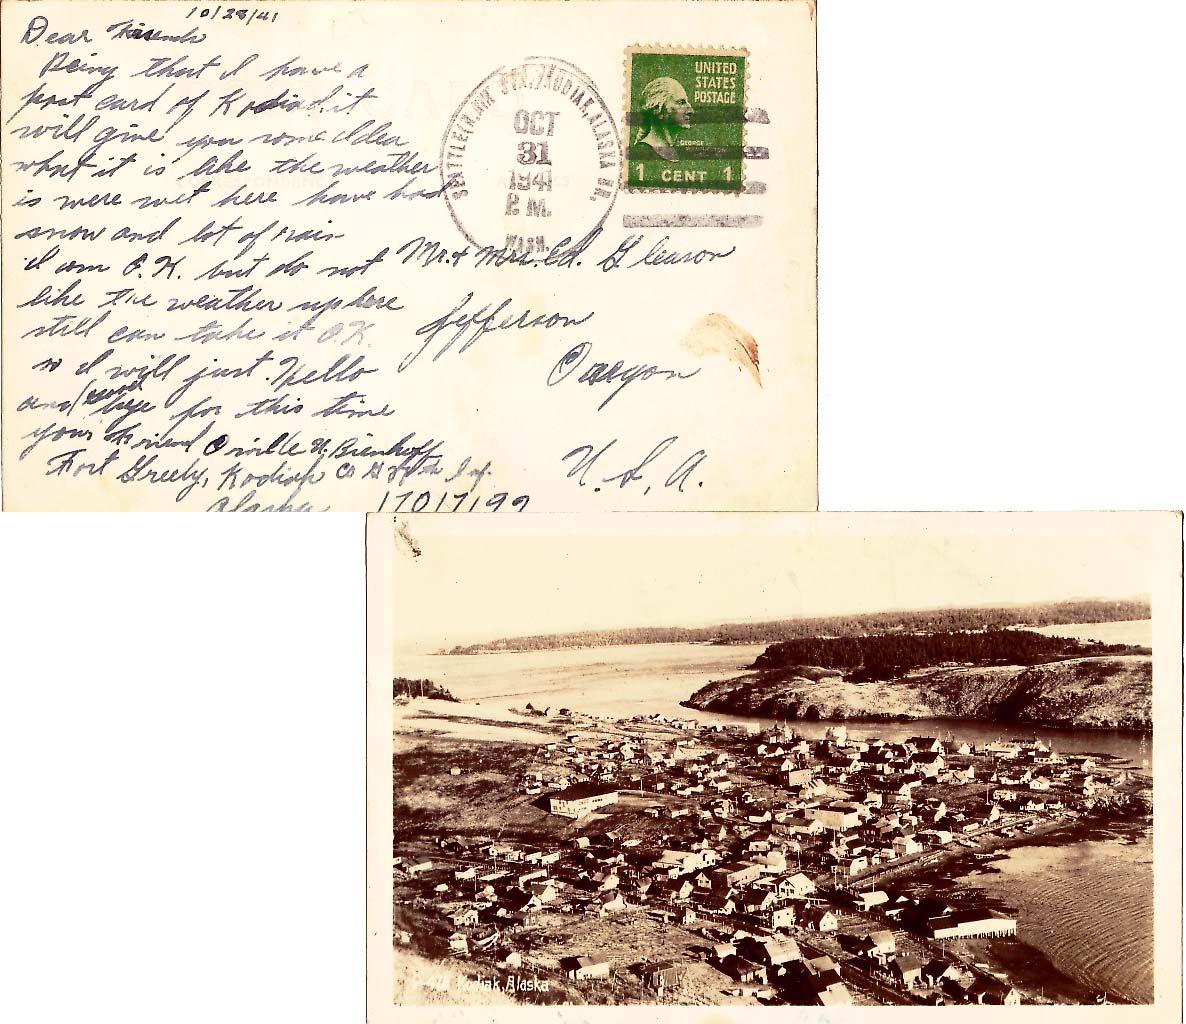 10/28/41
Dear Friends
Being that I have a
post card of Kodiac it
will give you some Idea
what it is like the weather
is were wet here have had
snow and lot of rain
I am O.K. but do not
like the weather up here
still can take it O.K.
so I will just Hello
and good bye for this time
your friend Orville N. Bienhoff
Fort Greely, Kodiak Co G
Alaska
SEATTLE KODIAK, ALASKA BR.
OCT
31
1941
P M.
WASH.
UNITED
STATES
POSTAGE
GEORGE
WASHINGTON
1 CENT 1
Mr. & Mrs. Ed. Gleason
Jefferson
Oregon
U.S.A.
Kodiak, Alaska